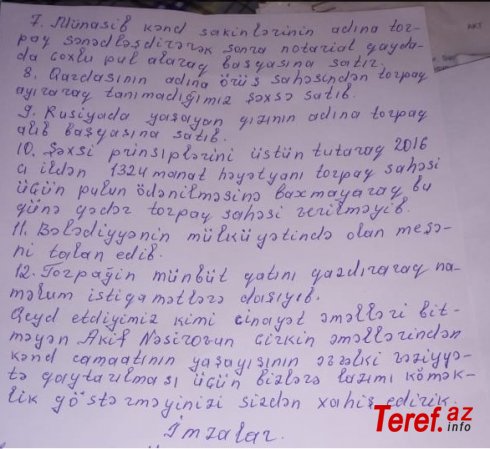 7. Münasib kənd sakinlərinin adına tor-
pag sənədləşdirərək sonra notarial gayda-
da çoxlu pul alarag başgasına satır.
8. Qardaşının adına örüş sahəsindən torpag
ayırarag tanımadığımız şəxsə satıb.
9. Rusiyada yaşayan gızının adına torpag
alıb başgasına satıb.
10. Şəxsi prinsiplərini üstün tutarag 2016
cı ildən 1324 manat həyətyanı torpag sahəsi
üçün pulun ödənilməsinə baxmayarag bu
günə gədər torpag sahəsi verilməyib.
11. Bələdiyyənin mülküyətində olan meşə-
ni talan edib.
12. Torpağın münbüt gatını gazdırarag na-
məlum istigamətlərə daşıyıb.
Qeyd etdiyimiz kimi cinayət əməlləri bit-
məyən Akif Nəsirovun çirkin əməllərindən
kənd camaatının yaşayışının əvvəlki vəziyyə-
tə gaytarılması üçün bizlərə lazımı kömək-
lik göstərməyinizi sizdən xahiş edirik.
İmzalar.
Teref.az
info